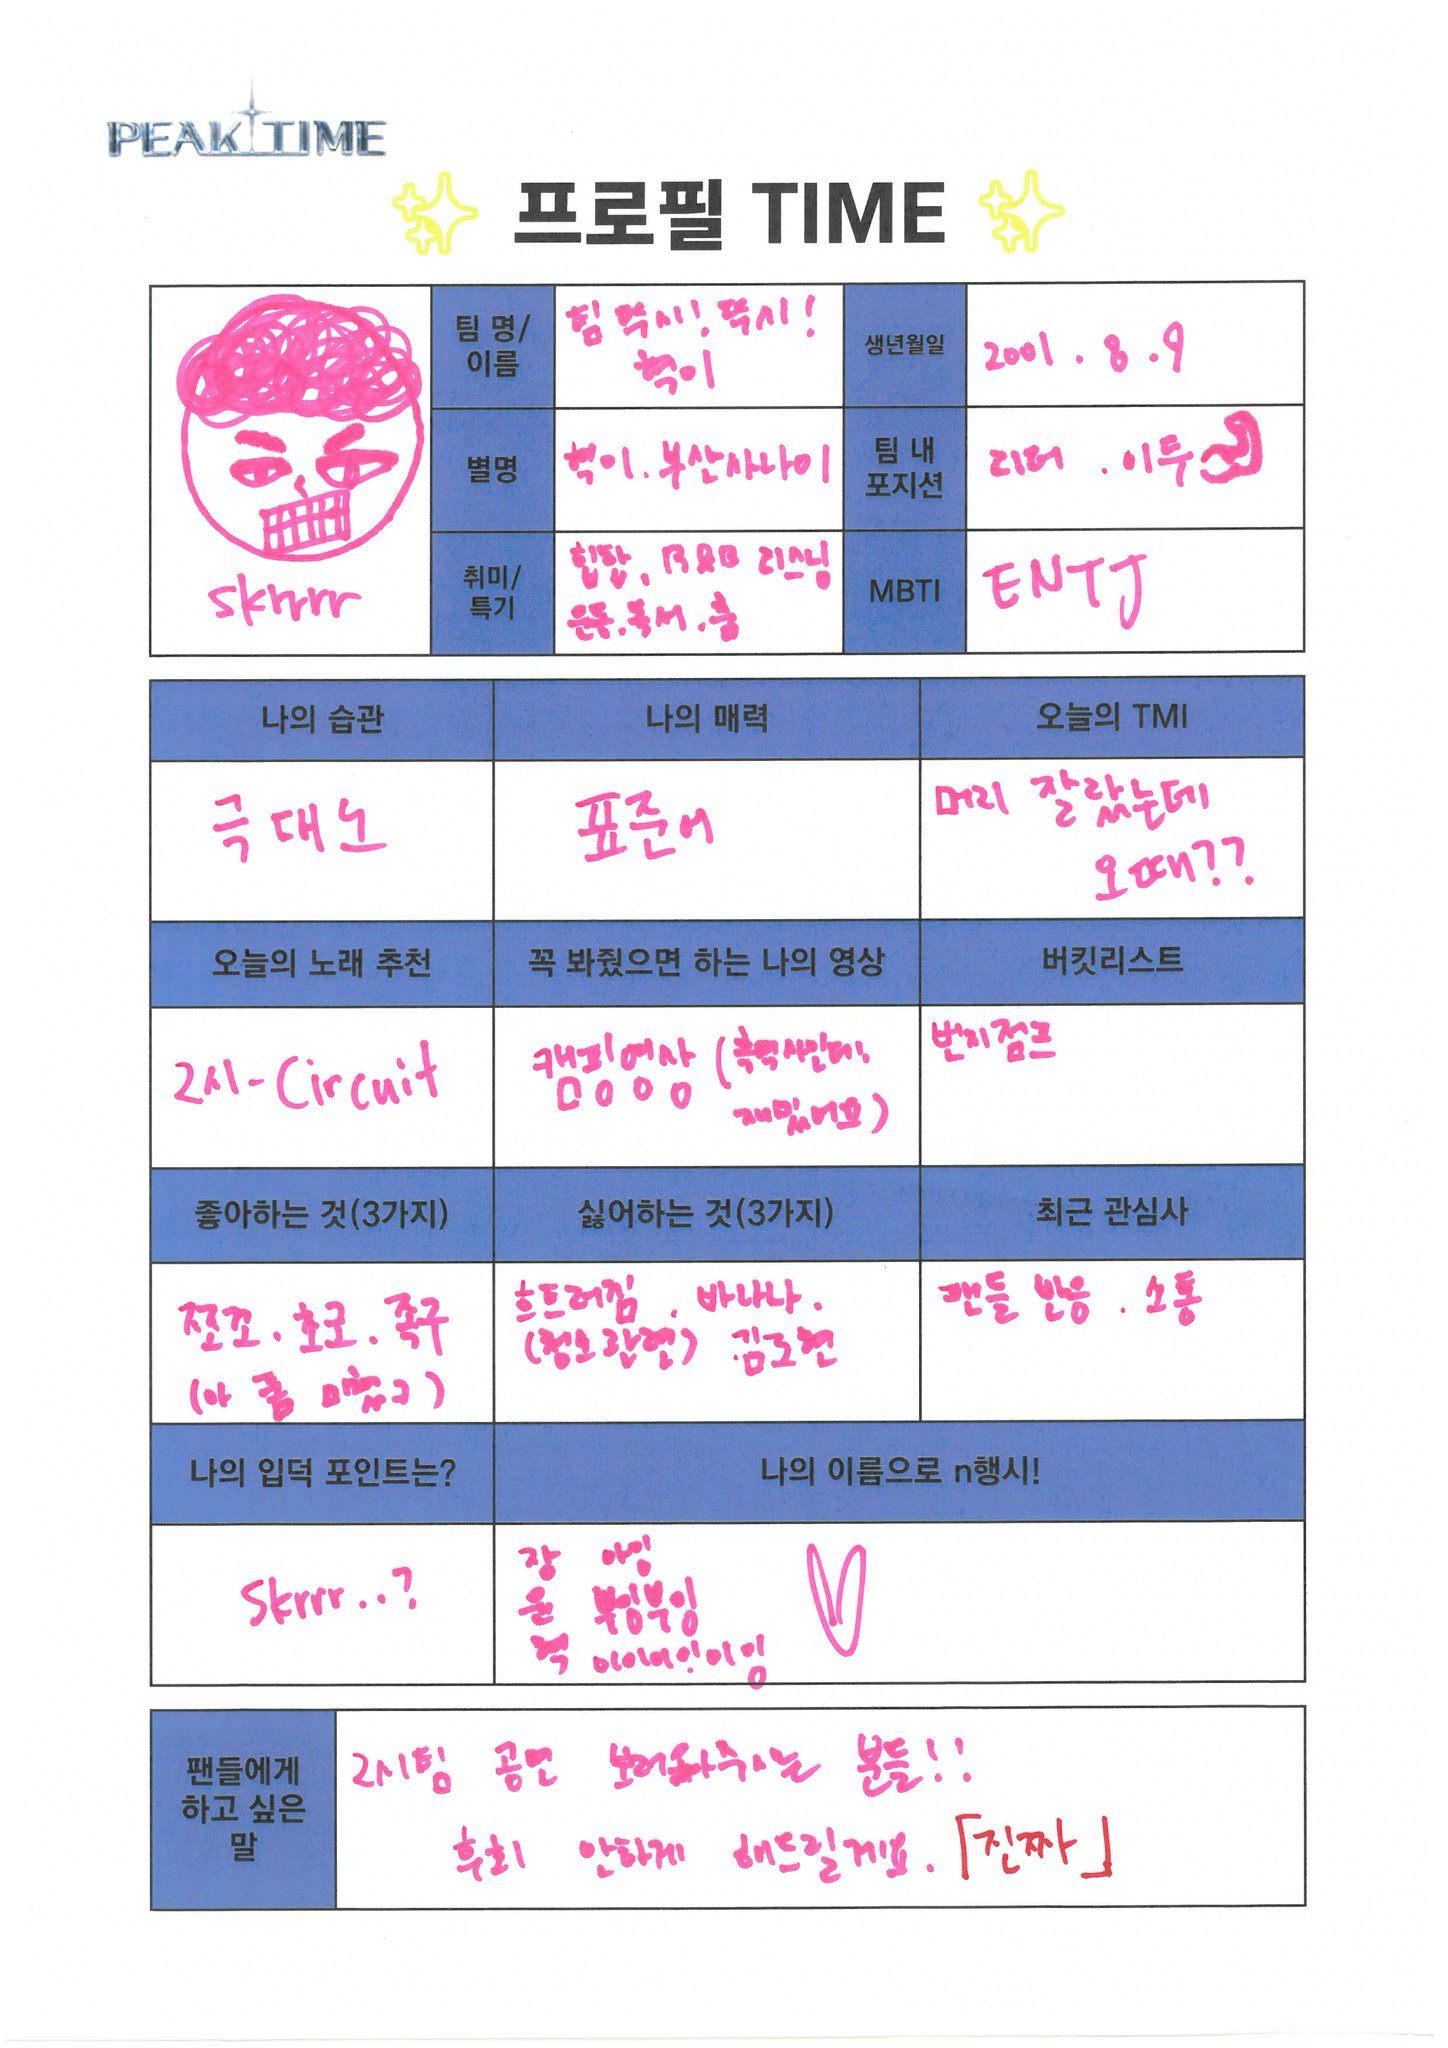 PEAK TIME
프로필 TIME
skrrrr
팀 명/
이름
팀 뚝시! 뚝시!
혁이
생년월일
2001.8.9
별명
혁이. 부산사나이
팀 내
포지션
리더 . 이두
취미/
특기
힙합, R&B 리스닝
운동.독서.춤
MBTI
ENTJ
나의 습관
나의 매력
오늘의 TMI
극대노
표준어
머리 잘랐는데
오때??
오늘의 노래 추천
꼭 봐줬으면 하는 나의 영상
버킷리스트
2시-Circuit
캠핑영상 (흑역사인데,
재밌어요)
번지점프
좋아하는 것(3가지)
싫어하는 것(3가지)
최근 관심사
쪼꼬. 초코. 족구
(아 폼 미쳤고)
흐트러짐 . 바나나.
(청소관련) 김도현
팬들 반응 . 소통
나의 입덕 포인트는?
나의 이름으로 n행시!
skrrr..?
장 아잉
윤 부잉부잉
혁
팬들에게
하고 싶은
말
2시팀 공연 보러와주시는 분들!!
후회 안하게 해드릴게요. 「진짜」